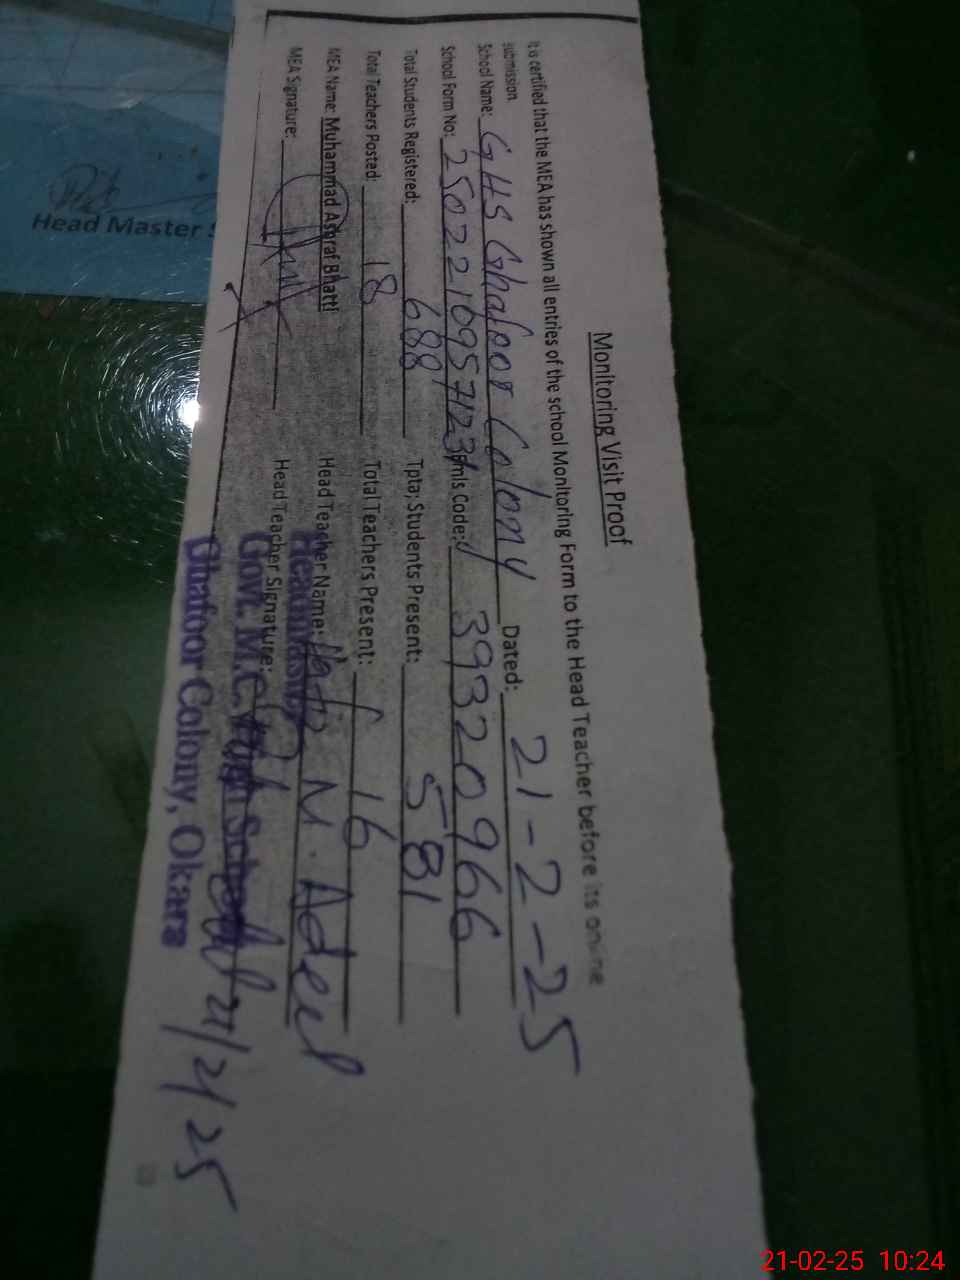 Monitoring Visit Proof
It is certified that the MEA has shown all entries of the school Monitoring Form to the Head Teacher before its online
submission.
School Name: GHS Ghafoor Colony Dated: 21-2-25
School Form No: Emis Code: 39320966
Total Students Registered: 688 Tpta; Students Present: 581
Total Teachers Posted: 18 Total Teachers Present: 16
MEA Name: Muhammad Ashraf Bhatti Head Teacher Name: M. Adeel
MEA Signature: Head Teacher Signature:
Govt. M.C. High School
Ghafoor Colony, Okara
21/2/25
Head Master
21-02-25 10:24